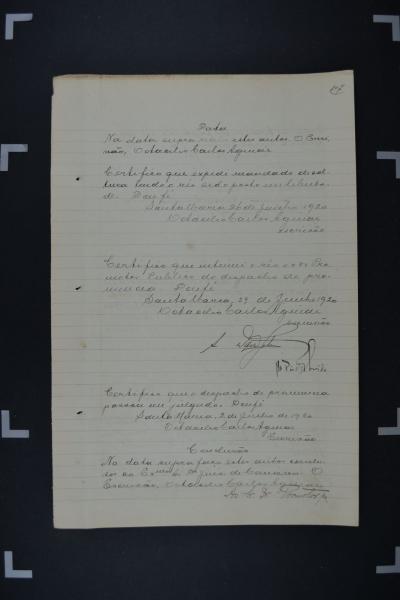 Data
Na data supra estes autos. O Escri-
vão, Octacilio Carlos Aguiar
Certifico que expedi mandado de sol-
tura tendo o réo sido posto em liberda-
de. Dou fé
Santa Maria, 26 de Junho 1920
Octacilio Carlos Aguiar
escrivão
Certifico que intimei o réo e o Dr. Pro-
motor Publico do despacho de pro-
nuncia. Dou fé
Santa Maria, 29 de Junho 1920
Octacilio Carlos Aguiar
escrivão
Certifico que o despacho de pronuncia
passou em julgado. Dou fé
Santa Maria, 2 de Julho de 1920
Octacilio Carlos Aguiar
Escrivão
Conclusão
Na data supra faço estes autos conclu-
sos ao Exmo Dr Juiz de Comarca. O
Escrivão, Octacilio Carlos Aguiar
Ao